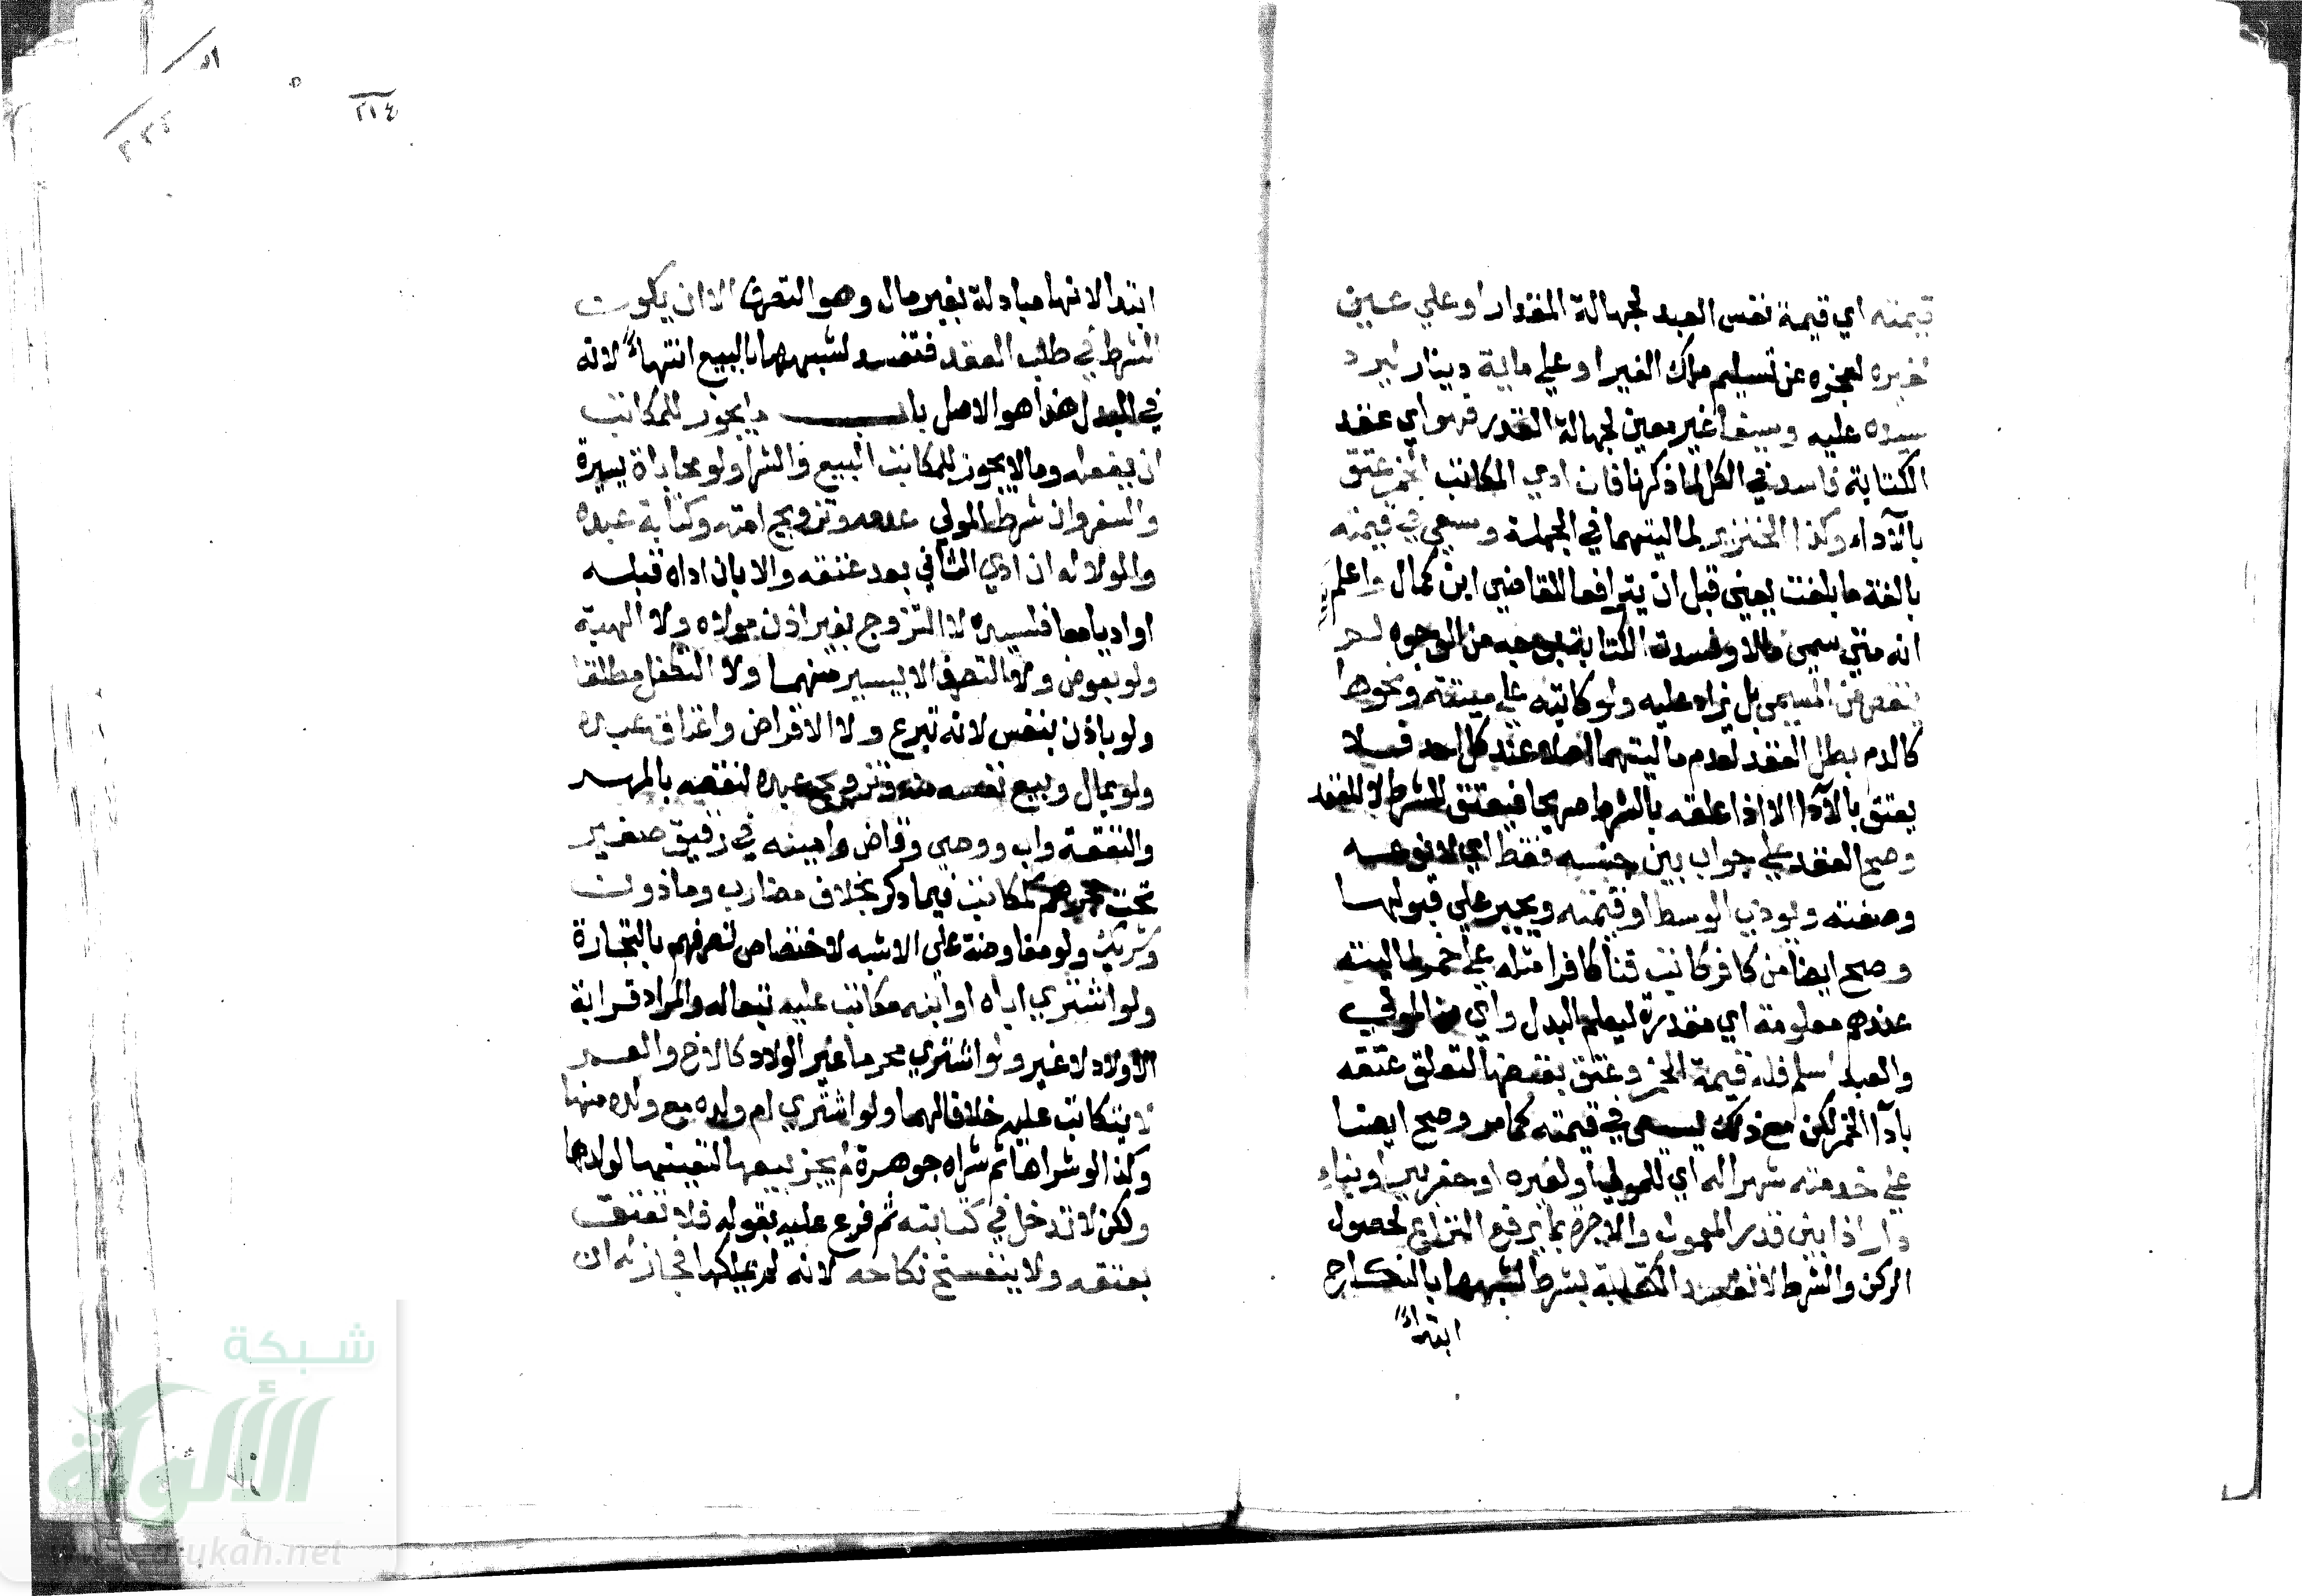 قيمته اي قيمة نفس العبد لجهالة المقدار او علي عين
غيره لعجزه عن تسليم ملك الغير او علي ماية دينار ليرد
سيده عليه وصيفا غير معين لجهالة القدر فهو اي عقد
الكتابة فاسد في الكل لما ذكرنا فان ادي المكاتب الخمر عتق
بالآداء وكذا الخنزير لماليتهما في الجملة وسعي في قيمته
بالغة ما بلغت يعني قبل ان يترافعا للقاضي ابن كمال واعلم
انه متي سمي مالا وفسدت الكتابة بوجه من الوجوه لم
ينقص من المسمي بل يزاد عليه ولو كاتبه علي ميتة ونحوها
كالدم بطل العقد لعدم ماليتهما اصلا عند كل احد فلا
يعتق بالآدا الا اذا علقه بالشرط صريحا فيعتق للشرط لا للعقد
وصح العقد علي حيوان بين جنسه فقط اي لا نوعه
وصفته ويودي الوسط او قيمته ويجبر علي قبولها
وصح ايضا من كافر كاتب قنا كافرا مثله علي خمر لماليته
عندهم معلومة اي مقدرة ليعلم البدل واي من المولي
والعبد اسلم فله قيمة الخمر وعتق بقبضها لتعلق عتقه
بادآ الخمر لكن مع ذلك يسعي في قيمته كما مر وصح ايضا
علي خدمته شهرا له اي للمولي او لغيره او حفر بير او بناء
دار اذا بين قدر المعمول والاجرة بما يرفع النزاع لحصول
الركن والشرط لا تفسد الكتابة بشرط لشبهها بالنكاح
ابتداءً
٢١٤
ابتدا لانها مبادلة بغير مال وهو التصرف الا ان يكون
الشرط في صلب العقد فتفسد لشبهها بالبيع انتهاءً لانه
في البدل هذا هو الاصل باب ما يجوز للمكاتب
ان يفعله وما لا يجوز للمكاتب البيع والشرا ولو بمحاباة يسيرة
والسفر وان شرط المولي عدمه وتزويج امته وكتابة عبده
والولاء له ان ادي الثاني بعد عتقه والا بان اداه قبله
او اديا معا فلسيده لا التزوج بغير اذن مولاه ولا الهبة
ولو بعوض ولا التصدق الا بيسير منهما ولا التكفل مطلقا
ولو باذن بنفس لانه تبرع ولا الاقراض واعتاق عبده
ولو بمال وبيع نفسه منه وتزويج عبده لنقصه بالمهر
والنفقة واب ووصي وقاض وامينه في رقيق صغير
تحت حجرهم كمكاتب فيما ذكر بخلاف مضارب وماذون
وشريك ولو مفاوضة علي الاشبه لاختصاص تصرفهم بالتجارة
ولو اشتري اباه او ابنه مكاتب عليه تبعا له والمراد قرابة
الاولاد لا غير ولو اشتري محرما غير الولاد كالاخ والعم
لا يتكاتب عليه خلافا لهما ولو اشتري ام ولده مع ولده منها
وكذا لو شراها ثم شراه جوهرة لم يجز بيعها لتبعيتها لولدها
ولكن لا تدخل في كتابته ثم فرع عليه بقوله فلا تعتق
بعتقه ولا ينفسخ نكاحه لانه لم يملكها فجاز له ان
شبكة
الألوكة
www.alukah.net